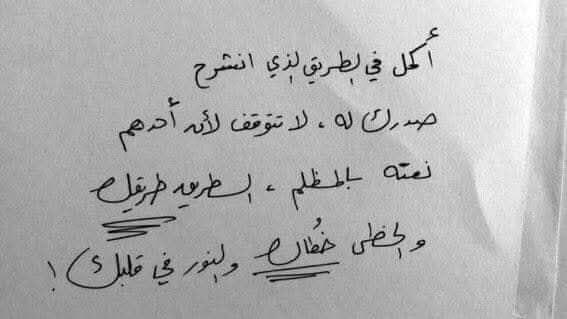 أكمل في الطريق الذي انشرح
صدرك له ، لا تتوقف لأن أحدهم
نعته بالمظلم ، الطريق طريقك
والخطى خُطاك والنور في قلبك !